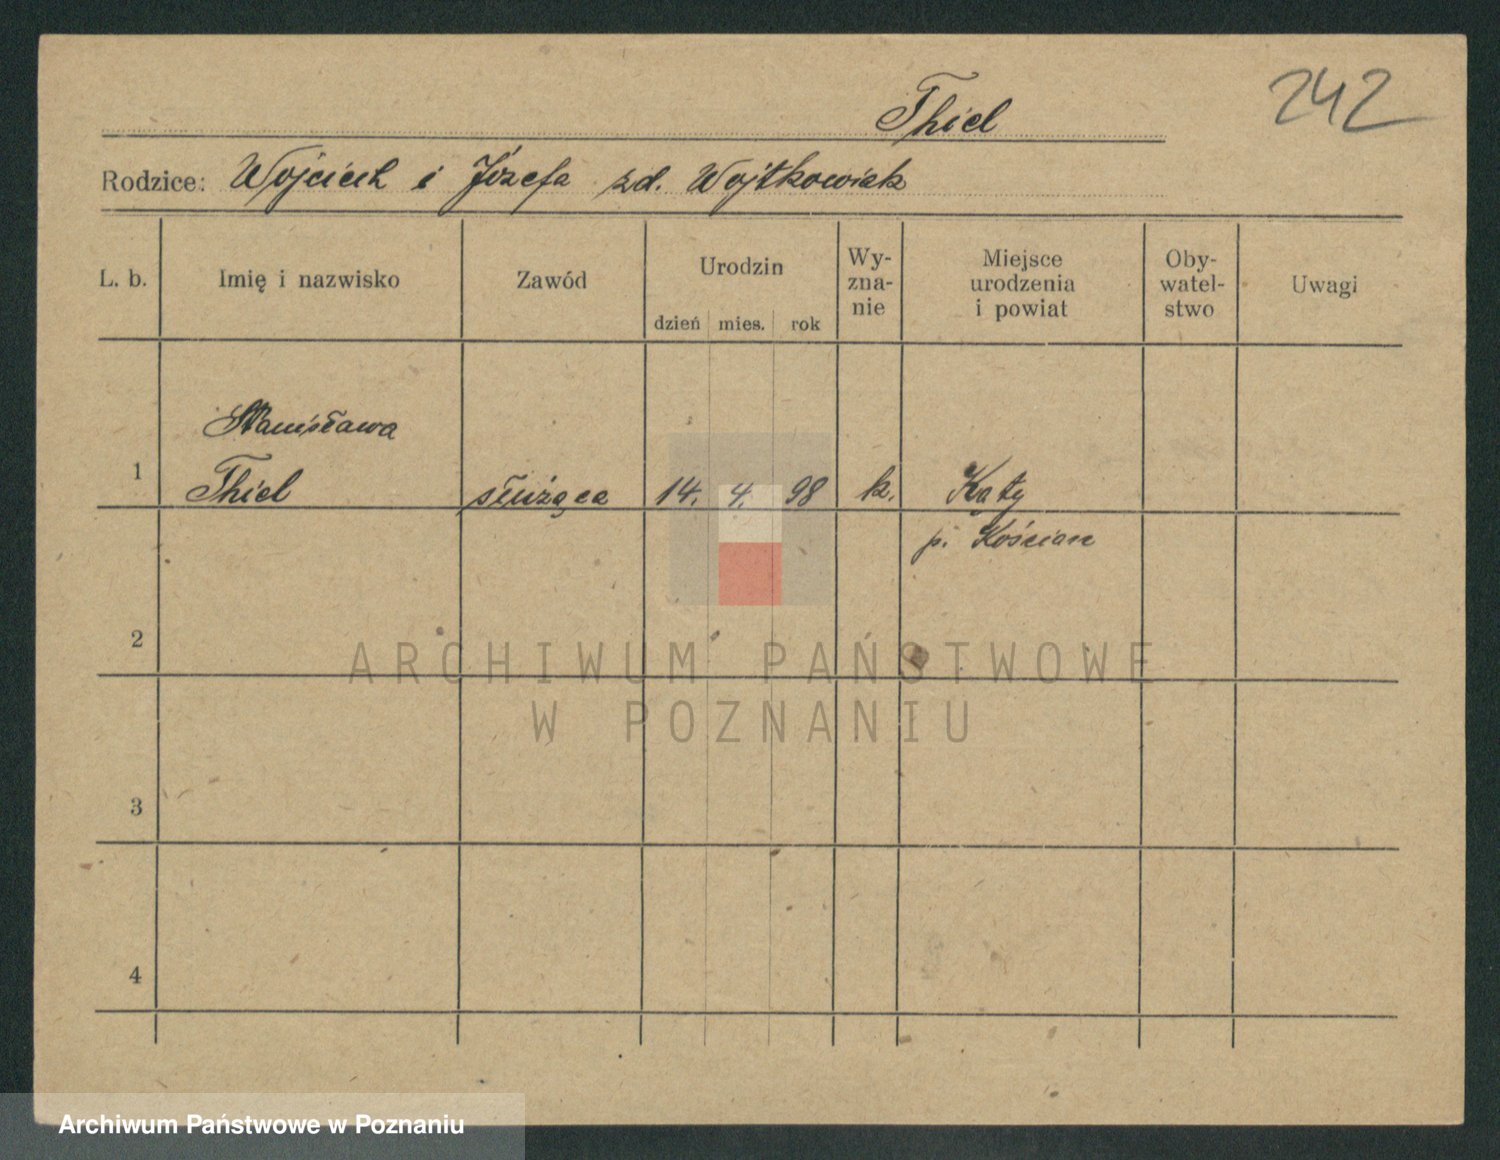 242
Thiel
Rodzice: Wojciech i Józefa zd. Wojtkowiak
L. b. Imię i nazwisko Zawód Urodzin Wy- Miejsce Oby- Uwagi
zna- urodzenia watel-
nie i powiat stwo
dzień mies. rok
Stanisława
1 Thiel służąca 14. 4. 98 k. Kąty
p. Kościan
2
ARCHIWUM PAŃSTWOWE
W POZNANIU
3
4
Archiwum Państwowe w Poznaniu